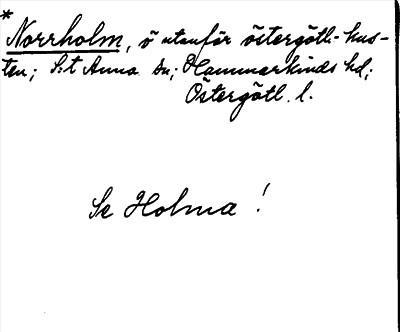 *
Norrholm, ö utanför östergötl.-kus-
ten; S:t Anna sn; Hammarkinds hd;
Östergötl. l.
Se Holma!